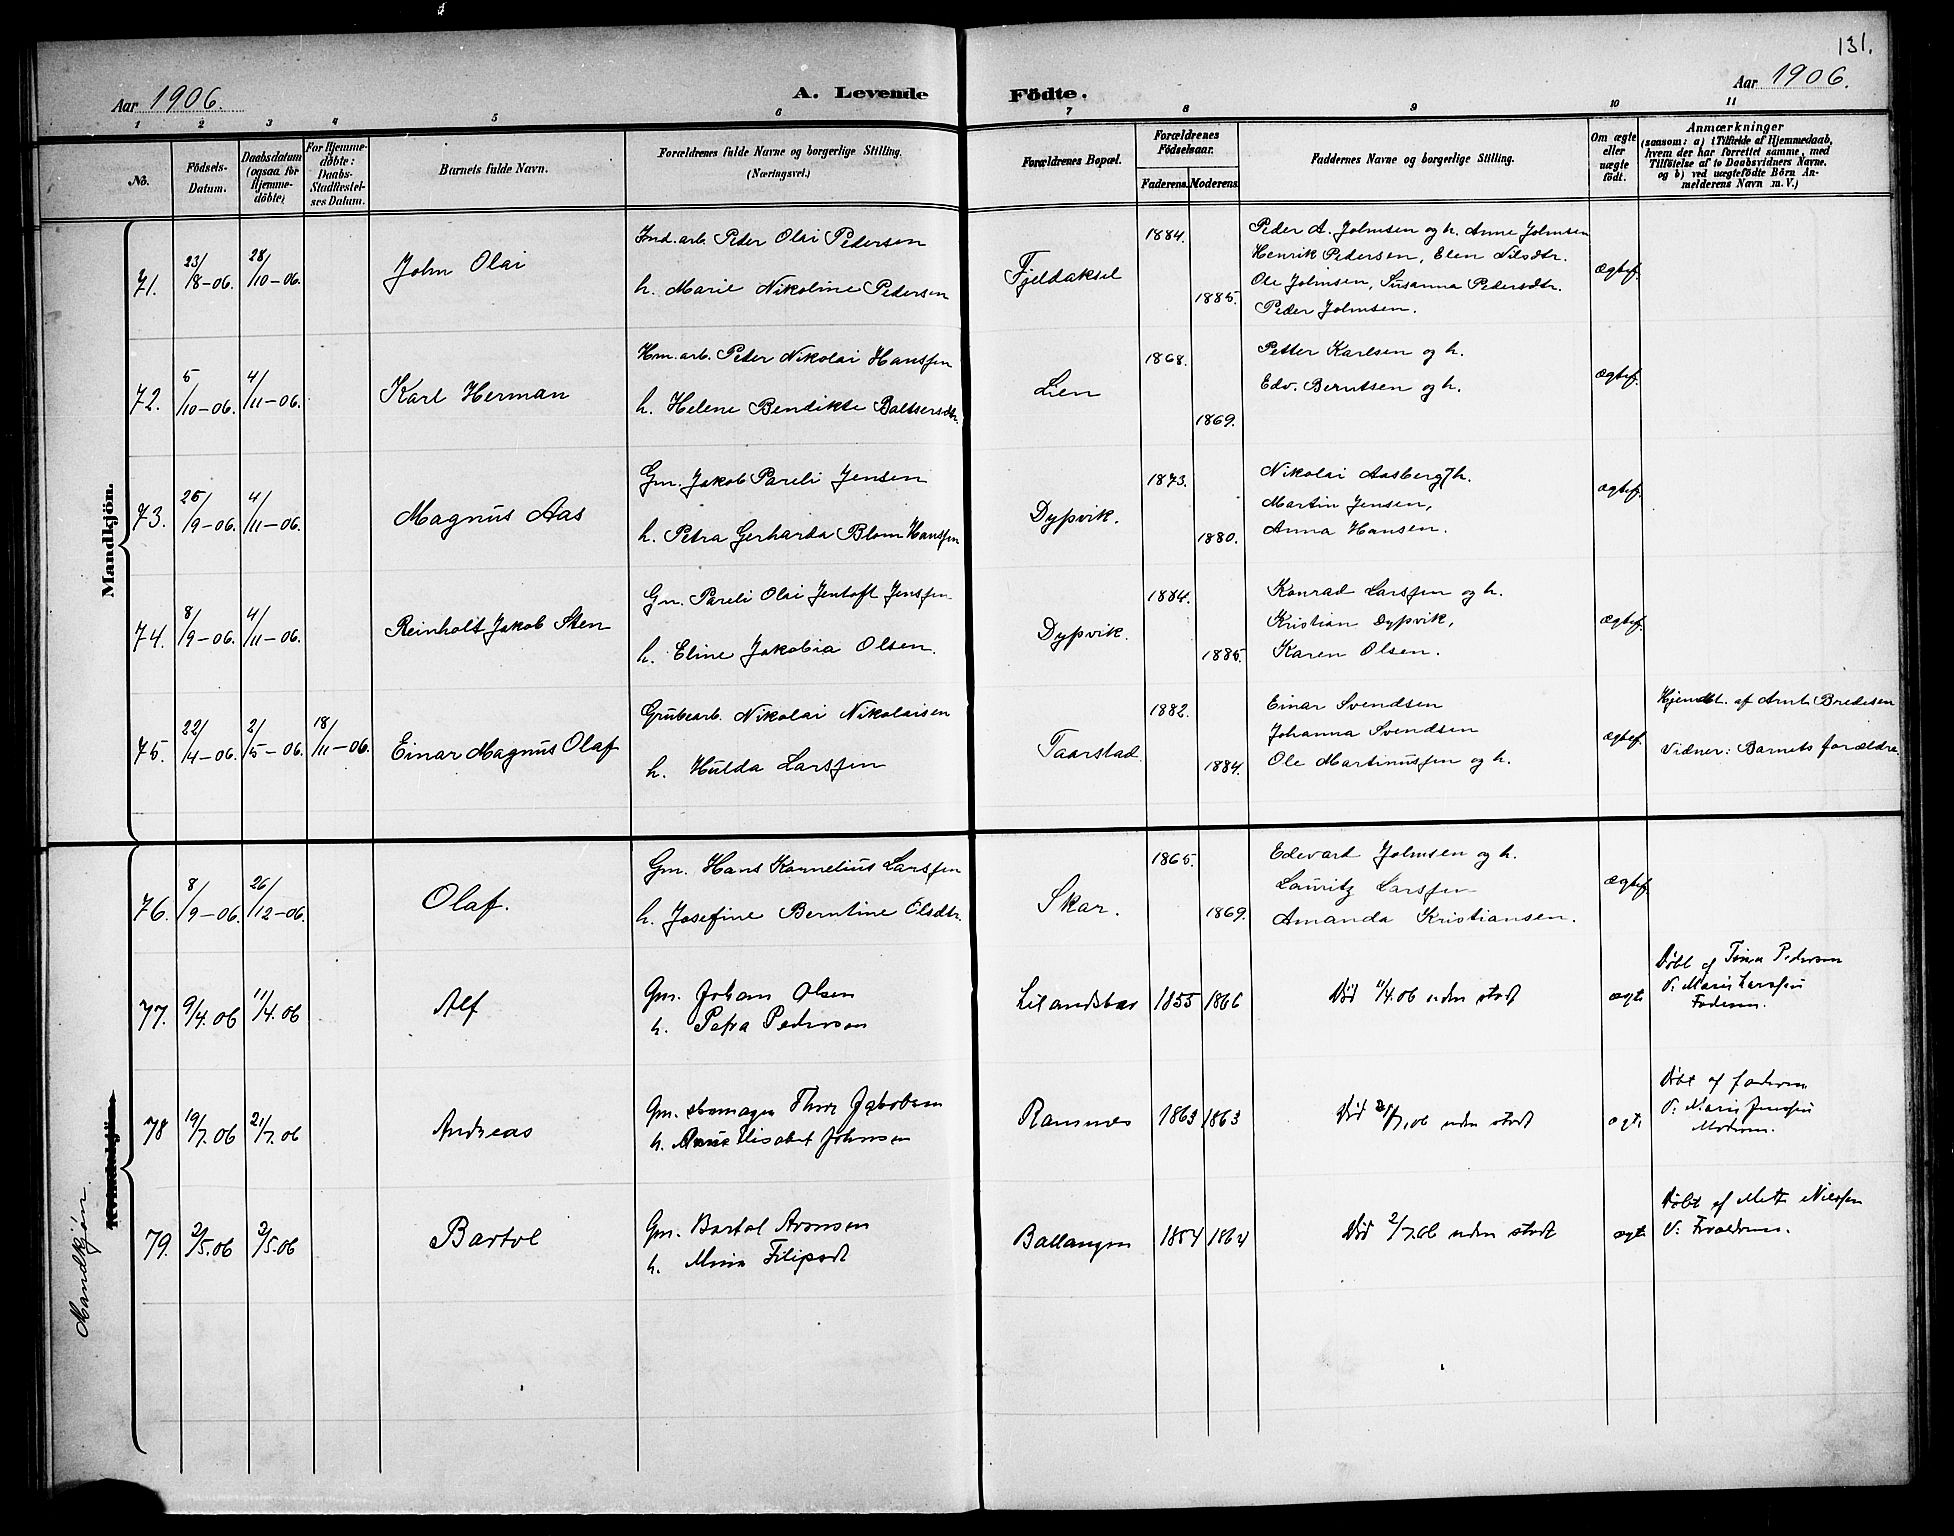 131.
Aar 1906.
A. Levende Födte.
Aar 1906.
1 2 3 4 5 6 7 8 9 10 11
No.
Födsels-Datum.
Daabsdatum (ogsaa for Hjemmedöbte)
For Hjemmedöbte: Daabs-Stadfestelses Datum.
Barnets fulde Navn.
Forældrenes fulde Navne og borgerlige Stilling. (Næringsvei.)
Forældrenes Bopæl.
Forældrenes Födselsaar.
Faderens. Moderens.
Faddernes Navne og borgerlige Stilling.
Om ægte eller uægte födt.
Anmærkninger
(saasom: a) i Tilfælde af Hjemmedaab, hvem der har forrettet samme, med Tilföielse af to Daabsvidners Navne, og b) ved uægtefödte Börn Anmelderens Navn m.V.)
Mandkjön.
71. 23/8-06. 28/10-06. John Olai
Ind.arb. Peder Olai Pedersen
h. Marie Nikoline Pedersen
Fjeldaksel 1884. 1885.
Peder A. Johnsen og h. Anne Johnsen
Henrik Pedersen, Elen Nilsdtr.
Ole Johnsen, Susanna Pedersdtr.
Peder Johnsen.
ægtef.
72. 5/10-06. 4/11-06. Karl Herman
Hm.arb. Peter Nikolai Hanssen
h. Helene Bendikte Baltsersdtr.
Lien 1868. 1869.
Petter Karlsen og h.
Edv. Berntsen og h.
ægtef.
73. 26/9-06. 4/11-06. Magnus Aas
Gm. Jakob Pareli Jensen
h. Petra Gerharda Blom Hanssen
Dypvik. 1873. 1880.
Nikolai Aasberg h.
Martin Jensen,
Anna Hansen.
ægtef.
74. 8/9-06. 4/11-06. Reinholt Jakob Sten
Gm. Pareli Olai Jentoft Jenssen
h. Eline Jakobia Olsen.
Dypvik. 1884. 1885.
Konrad Larssen og h.
Kristian Dypvik,
Karen Olsen.
ægtef.
75. 22/4-06. 2/5-06. 18/11-06. Einar Magnus Olaf
Grubearb. Nikolai Nikolaisen
h. Hulda Larssen
Taarstad 1882. 1884.
Einar Svendsen
Johanna Svendsen
Ole Martinussen og h.
ægtef.
Hjemdbt. af Arnt Bredesen
Vidner: Barnets forældre.
Kvindekjön.
Mandkjön.
76. 8/9-06. 26/12-06. Olaf.
Gm. Hans Kornelius Larssen
h. Josefine Berntine Olsdtr.
Skar. 1865. 1869.
Edevart Johnsen og h.
Lauritz Larssen
Amanda Kristiansen.
ægtef.
77. 9/4.06 11/4.06 Alf
Gm. Johan Olsen
h. Petra Pedersen
1855 1866
Död 11/4.06 uden stedt
ægt.
Döbt af Pedersen
V. Marie Larssen
Faderen.
78 19/7.06 21/7.06 Andreas
Gm. Thor Jakobsen
h. Elisabet Johnsen
Ramnes 1863 1863
Död 21/7.06 uden stedt
ægt.
Döbt af faderen
V. Marie Jenssen
Moderen.
79. 2/5.06 3/5.06 Bartol
Gm. Bartol Aronsen
h. Mina Filipsdt
Ballangen 1854 1864
Död 2/7.06 uden stedt
ægt.
Döbt af Mette Nilssen
V. Forældrene.